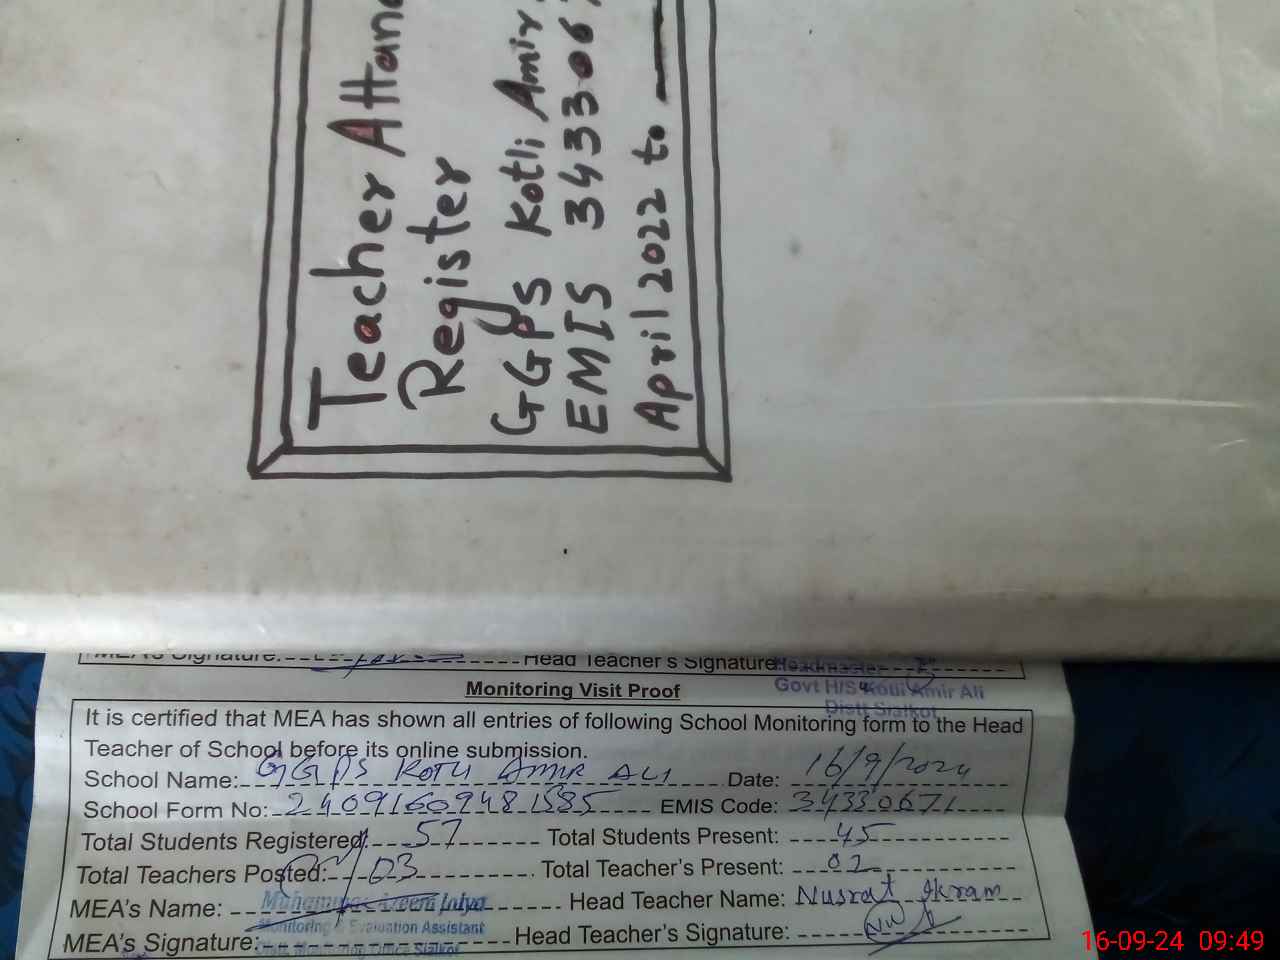 Teacher Attan
Register
GGPS Kotli Amir
EMIS 3433067
April 2022 to
MEA's Signature: Head Teacher's Signature
Headmaster
Govt H/S Kotli Amir Ali
Distt Sialkot
Monitoring Visit Proof
It is certified that MEA has shown all entries of following School Monitoring form to the Head
Teacher of School before its online submission.
School Name: GGPS KOTLI AMIR ALI Date: 16/9/2024
School Form No: 24091609481585 EMIS Code: 34330671
Total Students Registered: 57 Total Students Present: 45
Total Teachers Posted: 03 Total Teacher's Present: 02
MEA's Name: Muhammad Head Teacher Name: Nusrat Ikram
Monitoring & Evaluation Assistant
MEA's Signature: Head Teacher's Signature:
Distt. Monitoring Office Sialkot
16-09-24 09:49